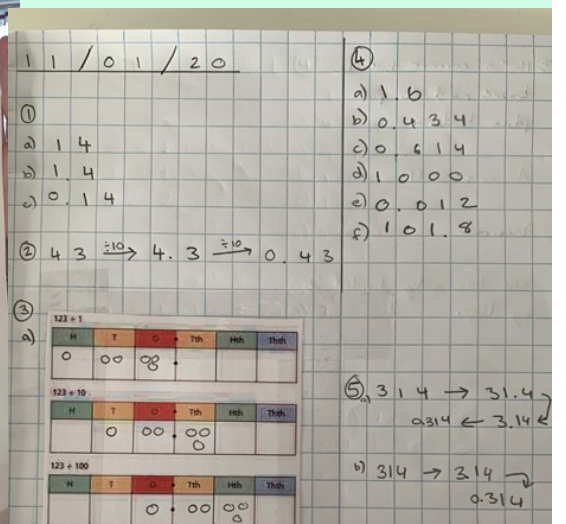 11/01/20
①
a) 14
b) 1.4
c) 0.14
② 43 ÷10→ 4.3 ÷10→ 0.43
③
a)
123 ÷ 1
H T O • Tth Hth Thth
123 ÷ 10
H T O • Tth Hth Thth
123 ÷ 100
H T O • Tth Hth Thth
④
a) 1.6
b) 0.434
c) 0.614
d) 1000
e) 0.012
f) 101.8
⑤ a) 314 → 31.4
0.314 ← 3.14
b) 314 → 3.14
0.314